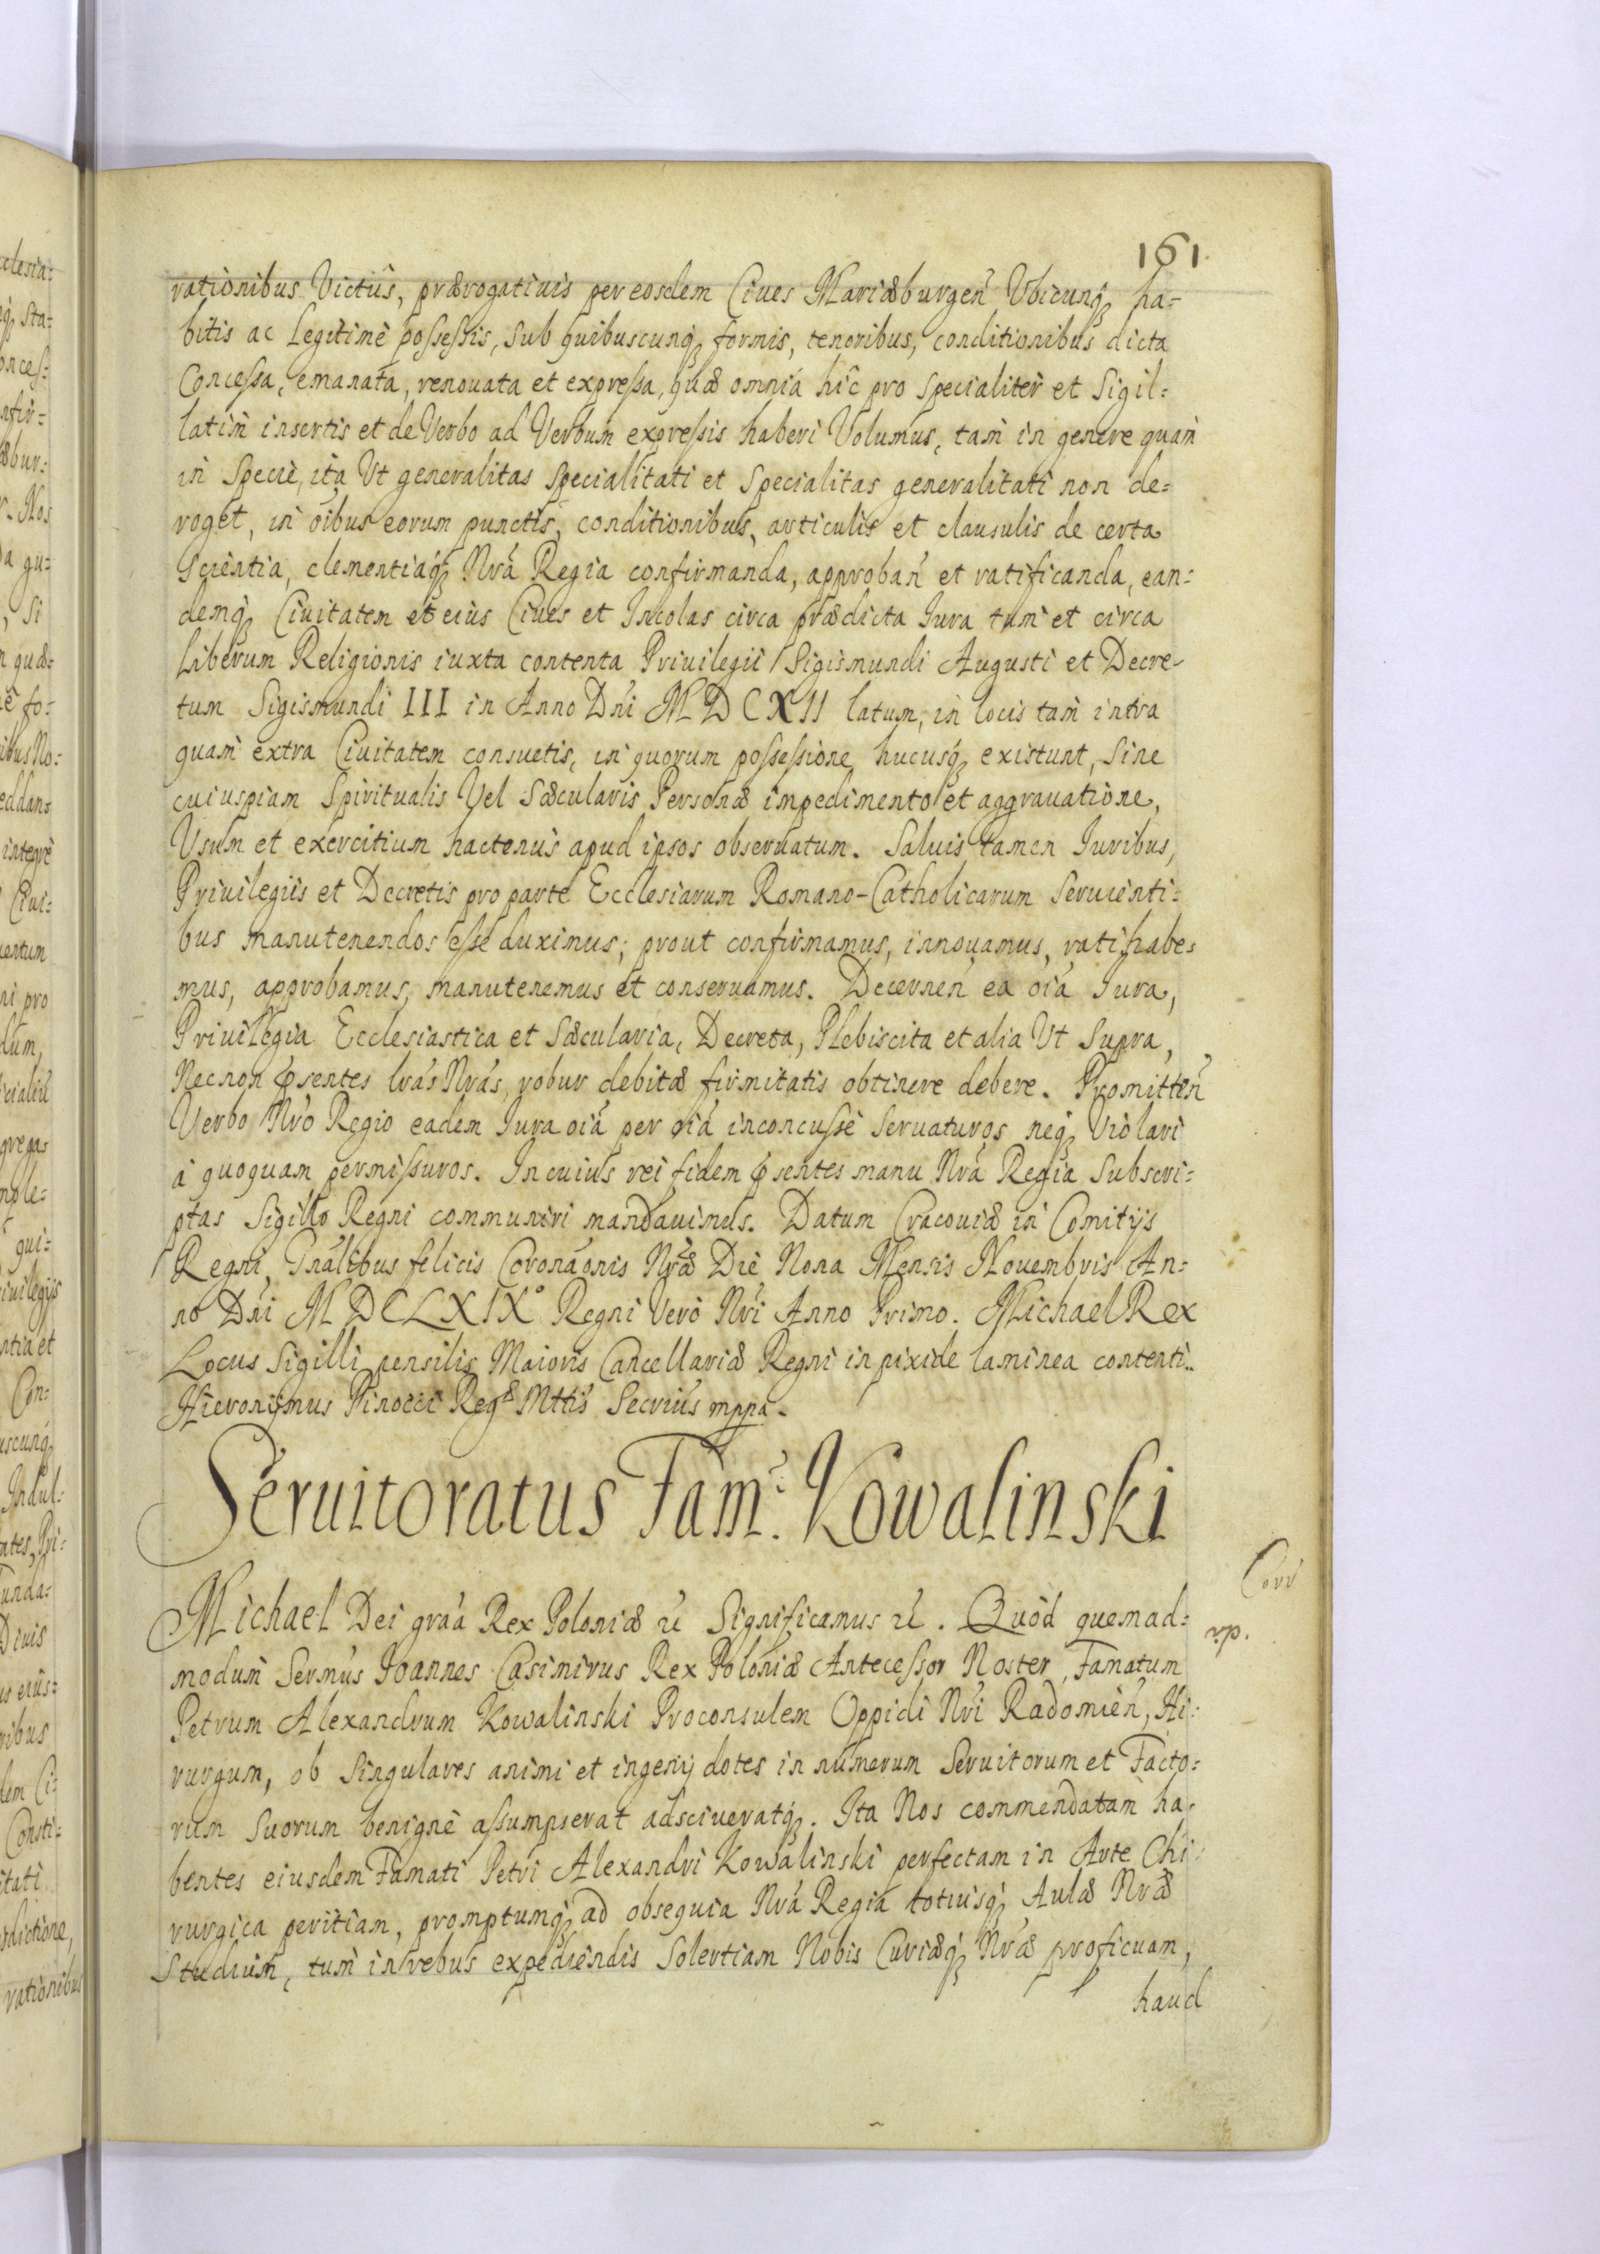 161
rationibus Victûs, prærogatiuis per eosdem Ciues Mariæburgeñ Vbicunq́ ha-
bitis ac Legitimè possessis, sub quibuscunq́ formis, tenoribus, conditionibus dicta
Concessa, emanata, renouata et expressa, quæ omnia hîc pro specialiter et Sigil=
latim insertis et de Verbo ad Verbum expressis haberi Volumus, tam in genere quam
in Specie, ita Vt generalitas Specialitati et Specialitas generalitati non de=
roget, in oĩbus eorum punctis, conditionibus, articulis et clausulis de certa
Scientia, clementiaq́ Nrã Regia confirmanda, approbañ et ratificanda, ean=
demq́ Ciuitatem et eius Ciues et Incolas circa prædicta Iura tum et circa
Liberum Religionis iuxta contenta Priuilegii Sigismundi Augusti et Decre-
tum Sigismundi III in Anno Dñi MDCXII latum, in locis tam intra
quam extra Ciuitatem consuetis, in quorum possessione hucusq́ existunt, sine
cuiuspiam Spiritualis Vel Sæcularis Personæ impedimento et aggrauatione,
Vsum et exercitium hactenus apud ipsos obseruatum. Saluis tamen Iuribus,
Priuilegiis et Decretis pro parte Ecclesiarum Romano-Catholicarum Seruienti=
bus manutenendos esse duximus; prout confirmamus, innouamus, ratihabe=
mus, approbamus, manutenemus et conseruamus. Decerneñ ea oĩa Iura,
Priuilegia Ecclesiastica et Sæcularia, Decreta, Plebiscita et alia Vt Supra,
Necnon p̃sentes lrãs Nrãs, robur debitæ firmitatis obtinere debere. Promitteñ
Verbo Nrõ Regio eadem Iura oĩa per oĩa inconcusse Seruaturos neq́ Violari
à quoquam permissuros. In cuius rei fidem p̃sentes manu Nrã Regia Subscri=
ptas Sigillo Regni communiri mandauimus. Datum Cracouiæ in Comitijs
Regni, Gnãlibus felicis Coronãonis Nræ Die Nona Mensis Nouembris An=
no Dñi MDCLXIX° Regni Vero Nrĩ Anno Primo. Michael Rex
Locus Sigilli pensilis Maioris Cancellariæ Regni in pixide laminea contenti..
Hieronijmus Pinocci Regæ Mttis Secriũs mppa.
Seruitoratus Fam: Kowalinski
Michael Dei grãa Rex Poloniæ &c Significamus &c. Quòd quemad=
modum Sermũs Joannes Casimirus Rex Poloniæ Antecessor Noster, Famatum
Petrum Alexandrum Kowalinski Proconsulem Oppidi Nrĩ Radomieñ, Hi=
rurgum, ob Singulares animi et ingenij dotes in numerum Seruitorum et Facto=
rum Suorum benignè assumpserat adsciueratq́. Ita Nos commendatam ha=
bentes eiusdem Famati Petri Alexandri Kowalinski perfectam in Arte Chi=
rurgica peritiam, promptumq́ ad obsequia Nrã Regia totiusq́ Aulæ Nræ
Studium, tum in rebus expediendis Solertiam Nobis Curiæq́ Nræ proficuam,
haud